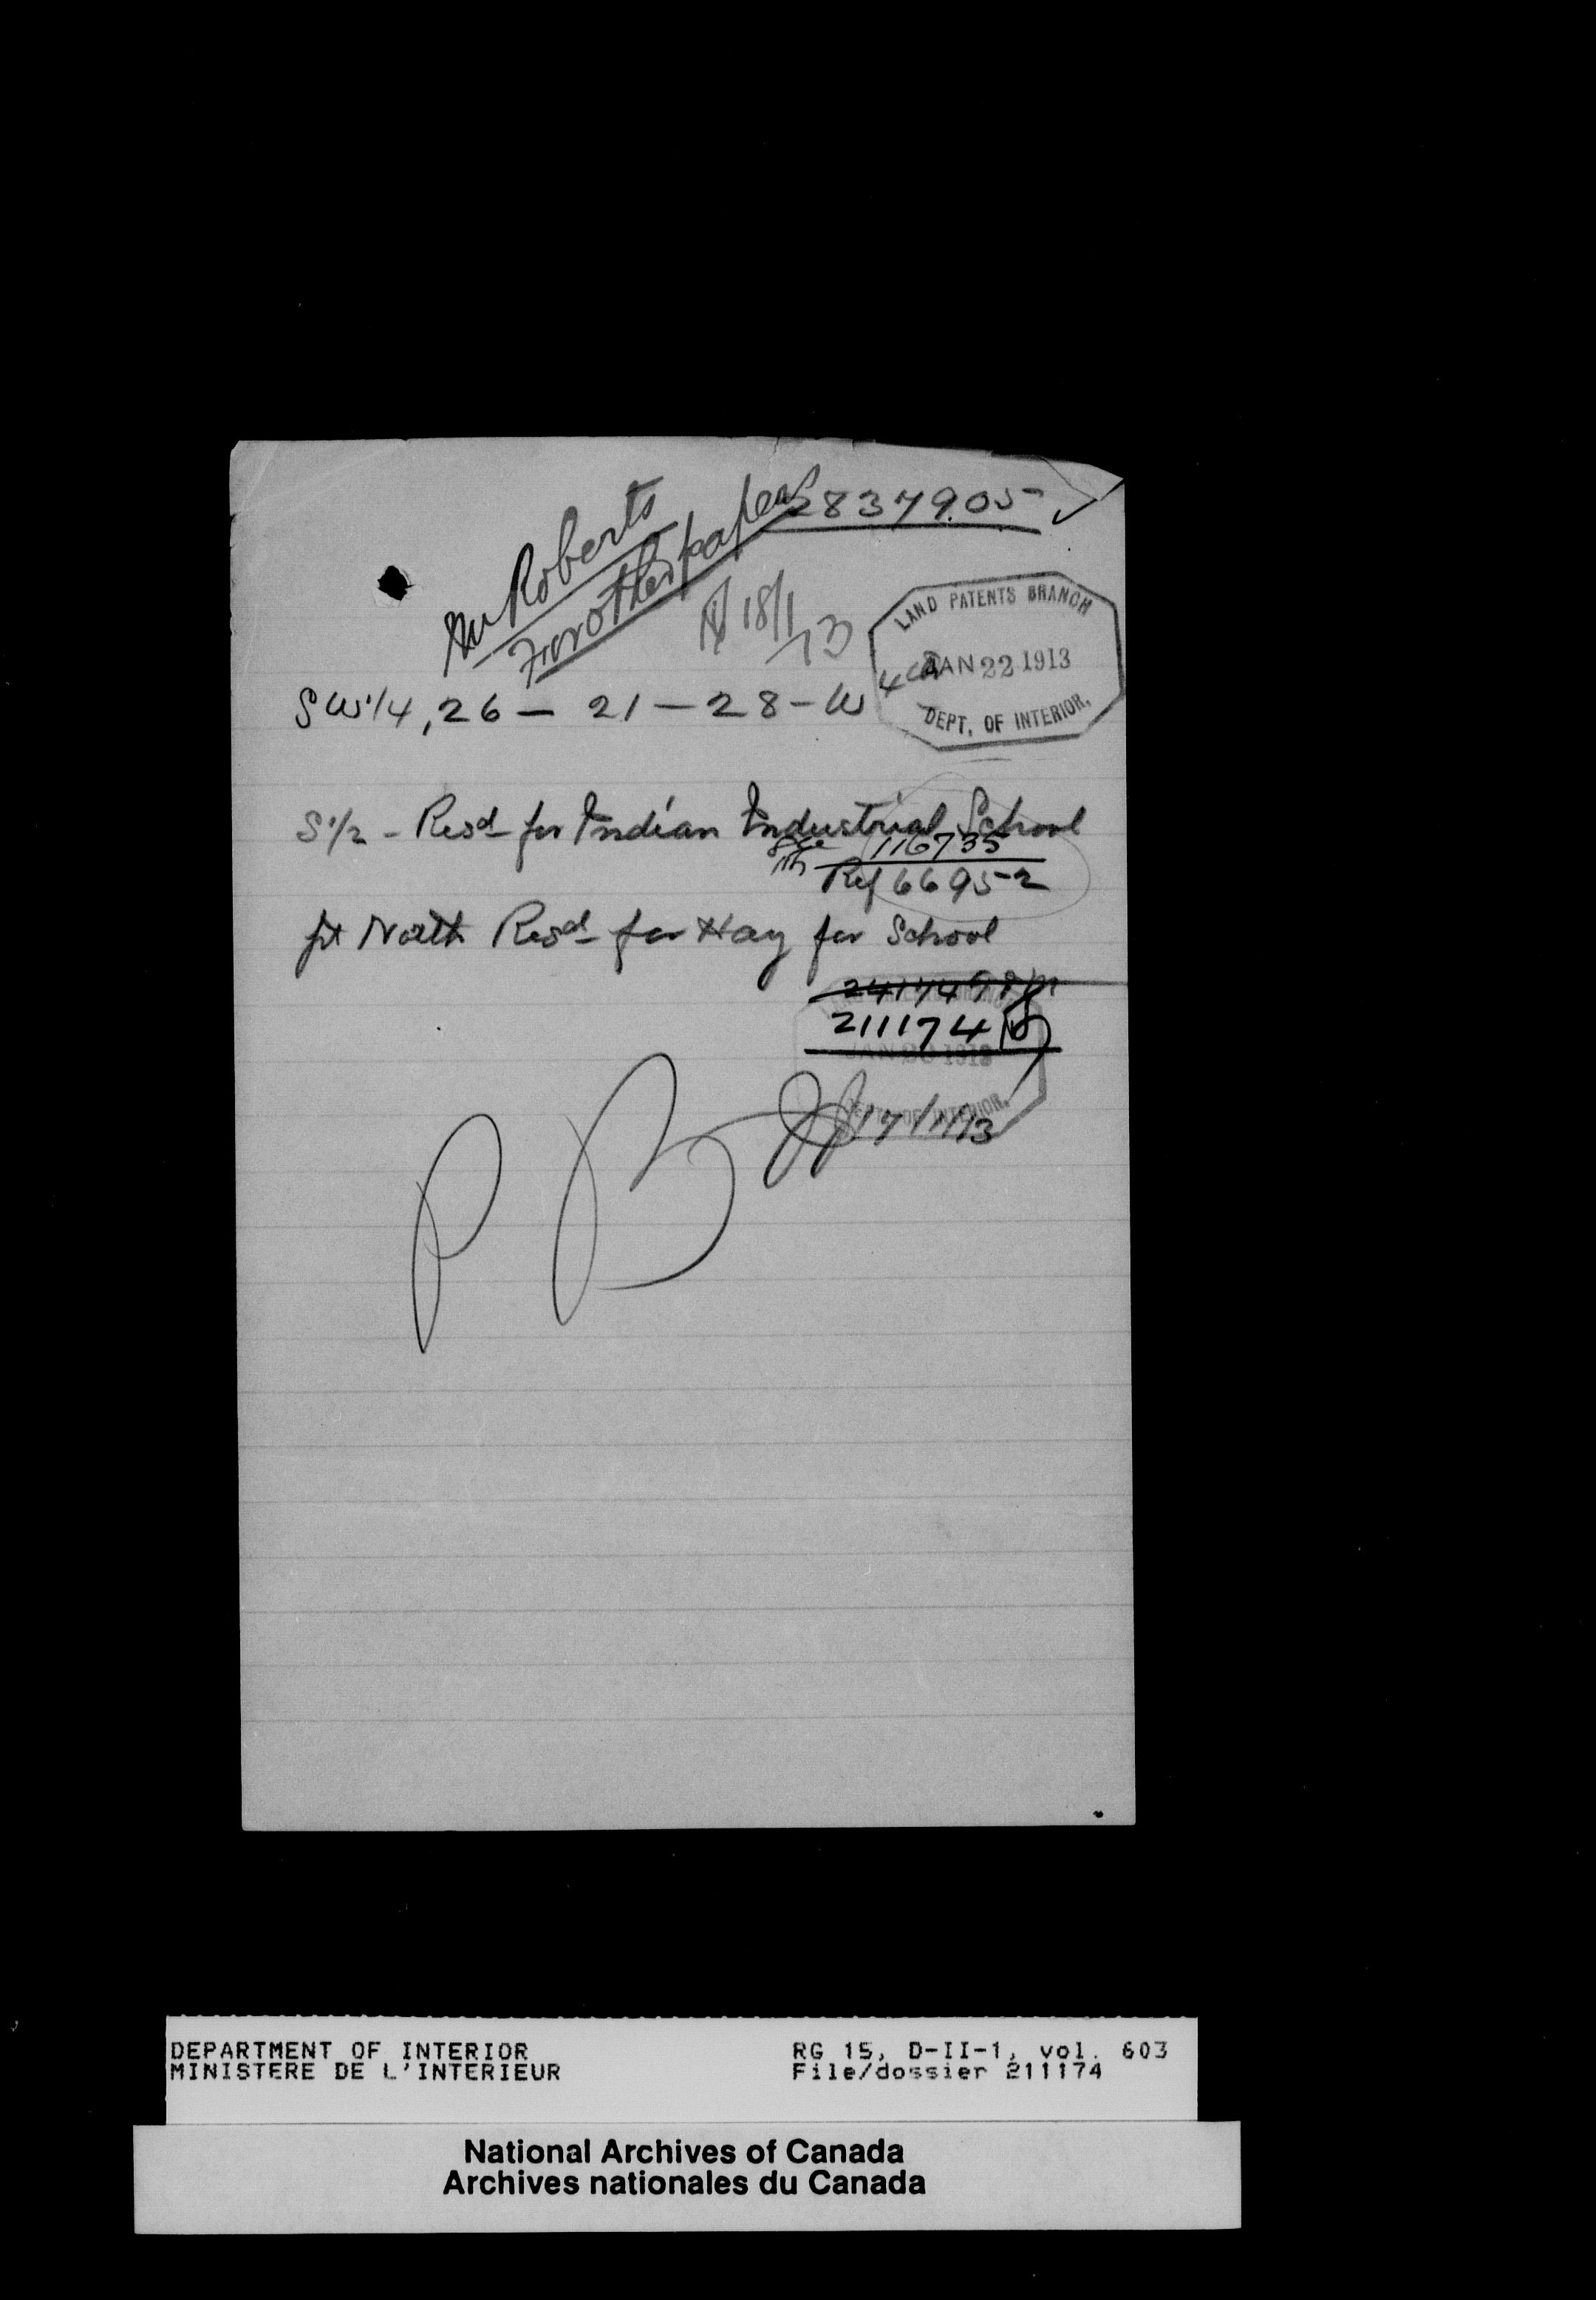 2837905
Mr Roberts
For other papers
18/1/13
LAND PATENTS BRANCH
JAN 22 1913
DEPT. OF INTERIOR.
SW1/4, 26 - 21 - 28 - W 4th
S1/2 - Resd for Indian Industrial School
See 116735
Ref 66952
pt North Resd for Hay for School
2417491
211174
JAN 20 1913
DEPT. OF INTERIOR.
17/1/13
P B
DEPARTMENT OF INTERIOR
MINISTERE DE L'INTERIEUR
RG 15, D-II-1, vol. 603
File/dossier 211174
National Archives of Canada
Archives nationales du Canada